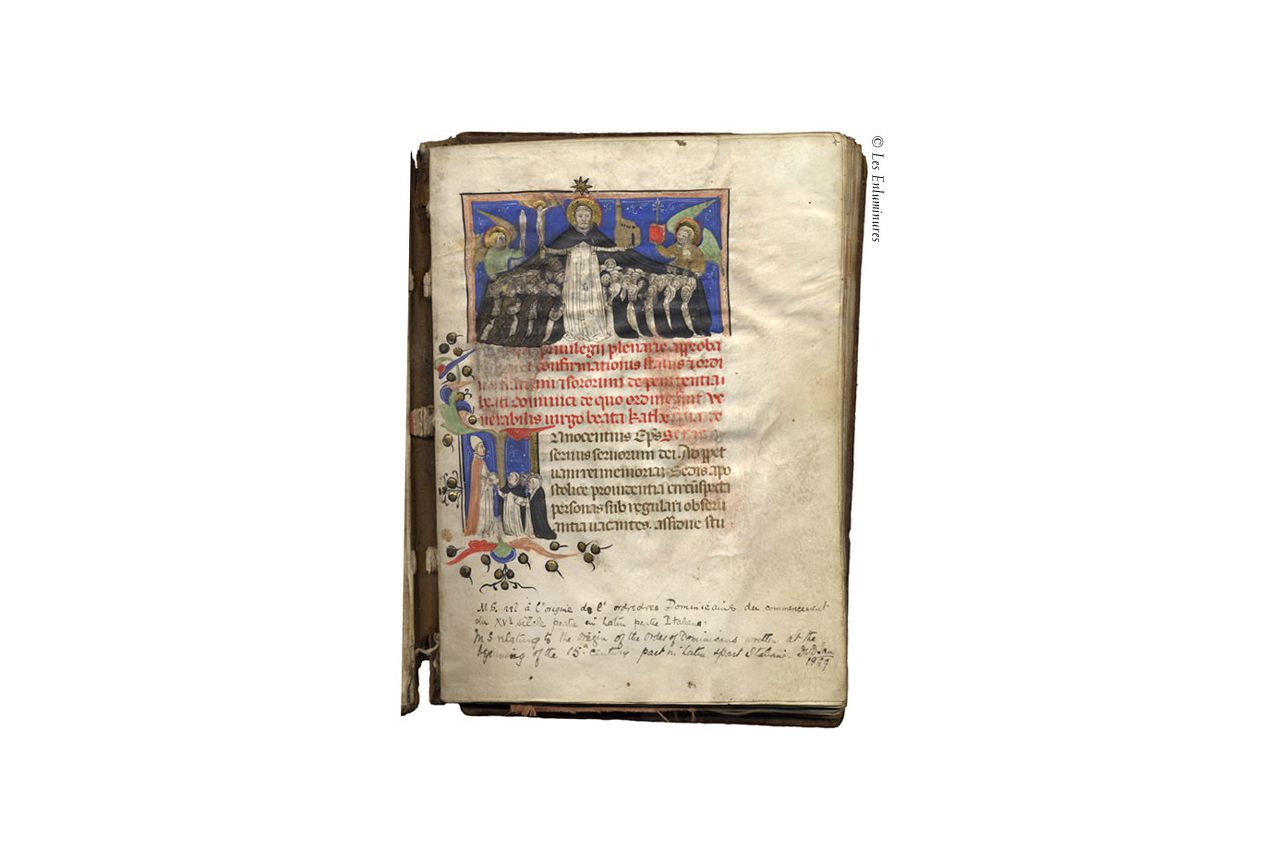 privilegii plenarie approba
confirmationis status & ordi
& sororum de penitentia
beati dominici de quo ordine fuit ve
nerabilis virgo beata Kath de
nnocentius Eps
seruus seruorum dei. Ad ppet
uam rei memoriam Sedis apo
stolice prouidentia circūspecta
personas sub regulari obseru
antia uacantes. assidue stu
MS. rel à l'origine de l' ordre des Dominicains du commencement
du XVe siècle partie en Latin partie Italien.
MS relating to the Origin of the Order of Dominicans written at the
beginning of the 15th century part in Latin & part Italian.
© Les Enluminures